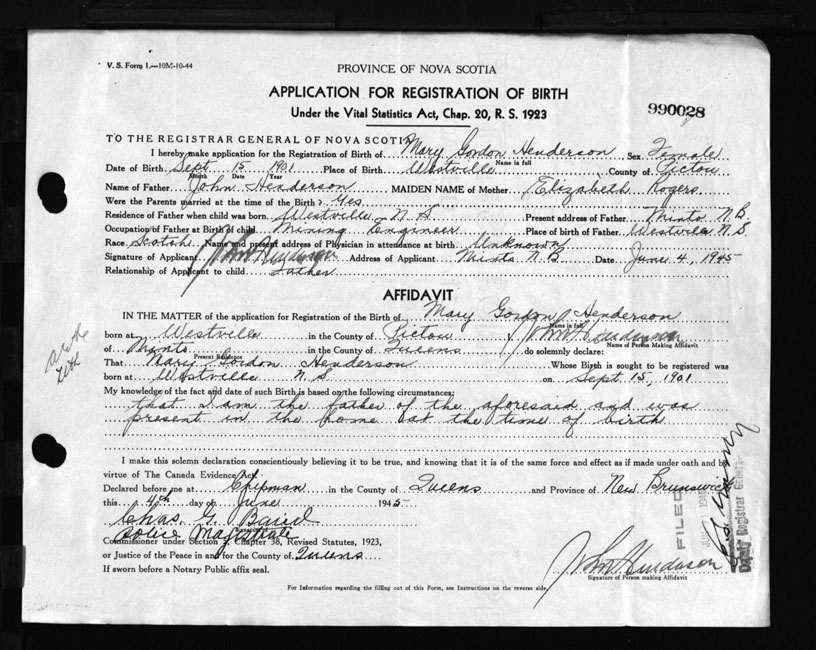 V. S. Form 1.—10M-10-44
PROVINCE OF NOVA SCOTIA
APPLICATION FOR REGISTRATION OF BIRTH
Under the Vital Statistics Act, Chap. 20, R. S. 1923
990028
TO THE REGISTRAR GENERAL OF NOVA SCOTIA
I hereby make application for the Registration of Birth of Mary Gordon Henderson Sex Female
Name in full
Date of Birth Sept 15 1901 Place of Birth Westville County of Pictou
Month Date Year
Name of Father John Henderson MAIDEN NAME of Mother Elizabeth Rogers
Were the Parents married at the time of the Birth? Yes
Residence of Father when child was born Westville N.S Present address of Father Minto N.B.
Occupation of Father at Birth of child Mining Engineer Place of birth of Father Westville N.S.
Race Scotch Name and present address of Physician in attendance at birth Unknown
Signature of Applicant John Henderson Address of Applicant Minto N.B. Date June 4, 1945
Relationship of Applicant to child Father
AFFIDAVIT
IN THE MATTER of the application for Registration of the Birth of Mary Gordon Henderson
Name in full
born at Westville in the County of Pictou I John Henderson
Name of Person Making Affidavit
of Minto in the County of Queens do solemnly declare:
Present Residence
That Mary Gordon Henderson Whose Birth is sought to be registered was
born at Westville N.S on Sept 15, 1901
My knowledge of the fact and date of such Birth is based on the following circumstances:
that I am the father of the aforesaid and was
present in the home at the time of birth
I make this solemn declaration conscientiously believing it to be true, and knowing that it is of the same force and effect as if made under oath and by
virtue of The Canada Evidence Act.
Declared before me at Chipman in the County of Queens and Province of New Brunswick
this 4th day of June 1945
Chas. G. Baird
Police Magistrate
Commissioner under Section 7, Chapter 38, Revised Statutes, 1923,
or Justice of the Peace in and for the County of Queens
If sworn before a Notary Public affix seal.
John Henderson
Signature of Person making Affidavit
For Information regarding the filling out of this Form, see Instructions on the reverse side.
FILED
Deputy Registrar General